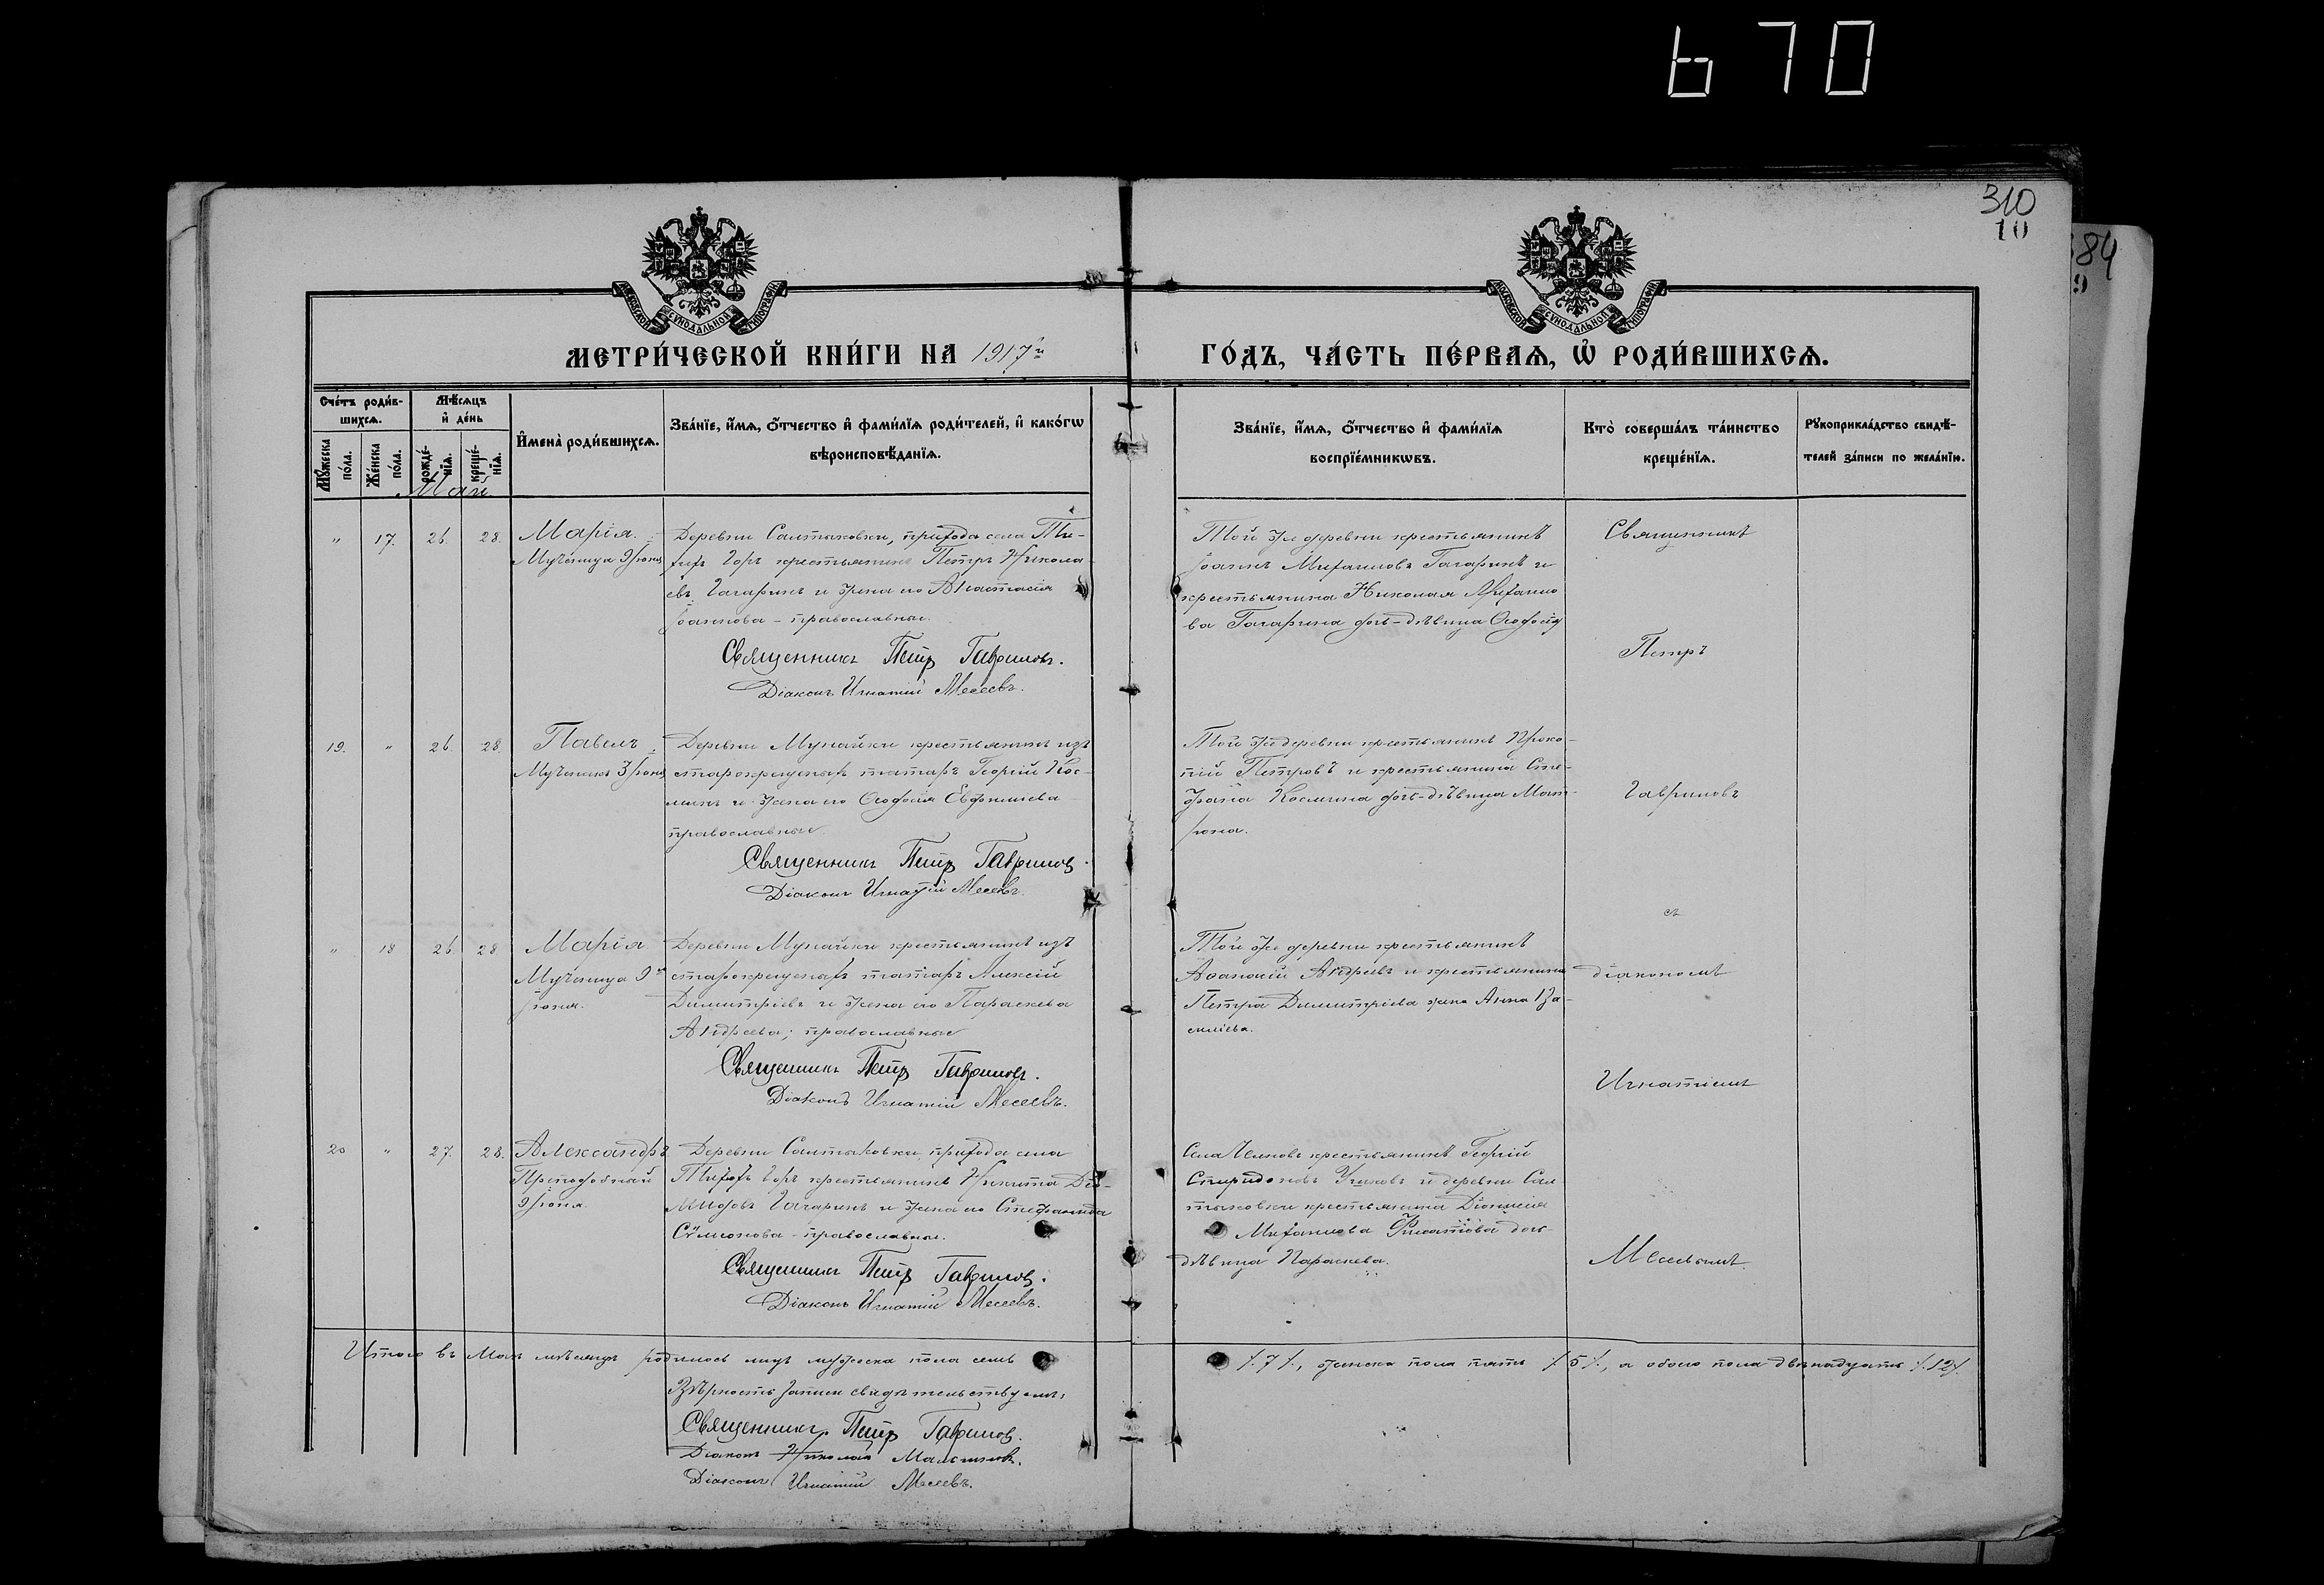 670
310
10
84
9
МОСКОВСКОЙ СѴНОДАЛЬНОЙ ТИПОГРАФІИ
МОСКОВСКОЙ СѴНОДАЛЬНОЙ ТИПОГРАФІИ
МЕТРИ́ЧЕСКОЙ КНИ́ГИ НА 1917й
ГО́ДЪ, ЧА́СТЬ ПЕ́РВАѦ, Ѽ РОДИ́ВШИХСѦ.
Сче́тъ роди́в-
шихсѧ.
Мꙋ́жеска по́ла.
Же́нска по́ла.
Мѣ́сѧцъ
и҆ де́нь
рожде́-нїѧ.
креще́-нїѧ.
И҆мена̀ роди́вшихсѧ.
Зва́нїе, и҆́мѧ, ѻ҆́тчество и҆ фами́лїѧ роди́телей, и҆ како́гѡ
вѣроисповѣ́данїѧ.
Зва́нїе, и҆́мѧ, ѻ҆́тчество и҆ фами́лїѧ
воспрїе́мникѡвъ.
Кто̀ соверша́лъ та́инство
креще́нїѧ.
Рꙋкоприкла́дство свидѣ́-
телей за́писи по жела́нїю.
Май
" 17. 26. 28. Марія.
Мученица 9 іюня
Деревни Салтыковки, прихода села Ти-
хихъ Горъ крестьянинъ Петръ Никола
евъ Гагаринъ и жена его Анастасія
Іоаннова - православные.
Священникъ Петръ Гавриловъ.
Діаконъ Игнатій Месеевъ.
Той же деревни крестьянинъ
Іоаннъ Михаиловъ Гагаринъ и
крестьянина Николая Михаило
ва Гагарина дочь-дѣвица Ѳеодосія
Священникъ
Петръ
19. " 26. 28. Павелъ
Мученикъ 3 іюня
Деревни Мунайки крестьянинъ изъ
старокрещеныхъ татаръ Георгій Кос-
минъ и жена его Ѳеодосія Евфиміева
православные
Священникъ Петръ Гавриловъ.
Діаконъ Игнатій Месеевъ.
Той же деревни крестьянинъ Проко-
пій Петровъ и крестьянина Сте-
фана Космина дочь-дѣвица Мат-
рона.
Гавриловъ
съ
" 18 26. 28 Марія
Мученица 9го
іюня.
Деревни Мунайки крестьянинъ изъ
старокрещеныхъ татаръ Алексій
Димитріевъ и жена его Параскева
Андреева; православные
Священникъ Петръ Гавриловъ.
Діаконъ Игнатій Месеевъ.
Той же деревни крестьянинъ
Аѳанасій Андреевъ и крестьянина
Петра Димитріева жена Анна Ва-
силіева.
діакономъ
Игнатіемъ
20 " 27. 28. Александръ
Преподобный
9 іюня.
Деревни Салтыковки, прихода села
Тихихъ Горъ крестьянинъ Никита Діо-
мидовъ Гагаринъ и жена его Стефанида
Сѵмеонова - православные.
Священникъ Петръ Гавриловъ.
Діаконъ Игнатій Месеевъ.
Села крестьянинъ Георгій
Спиридоновъ и деревни Сал
тыковки крестьянина Діонисія
Михаилова дочь-
дѣвица Параскева.
Месеевымъ.
Итого въ Маѣ мѣсяцѣ родилось лицъ мужеска пола семь
/.7/., женска пола пять /.5/., а обоего пола двѣнадцать /.12/.
Вѣрность записи свидѣтельствуемъ:
Священникъ Петръ Гавриловъ.
Діаконъ Николай
Діаконъ Игнатій Месеевъ.